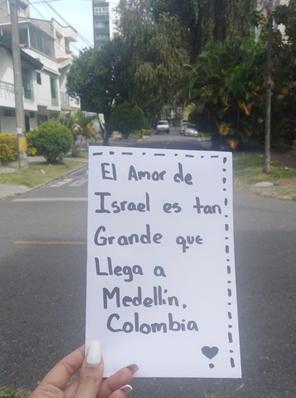 El Amor de
Israel es tan
Grande que
Llega a
Medellín,
Colombia